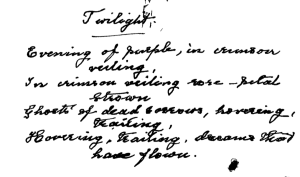 Twilight.
Evening of purple, in crimson
veiling,
In crimson veiling rose-petal
strown
Ghosts of dead sorrows, hovering,
trailing,
Hovering, trailing, dreams that
have flown.